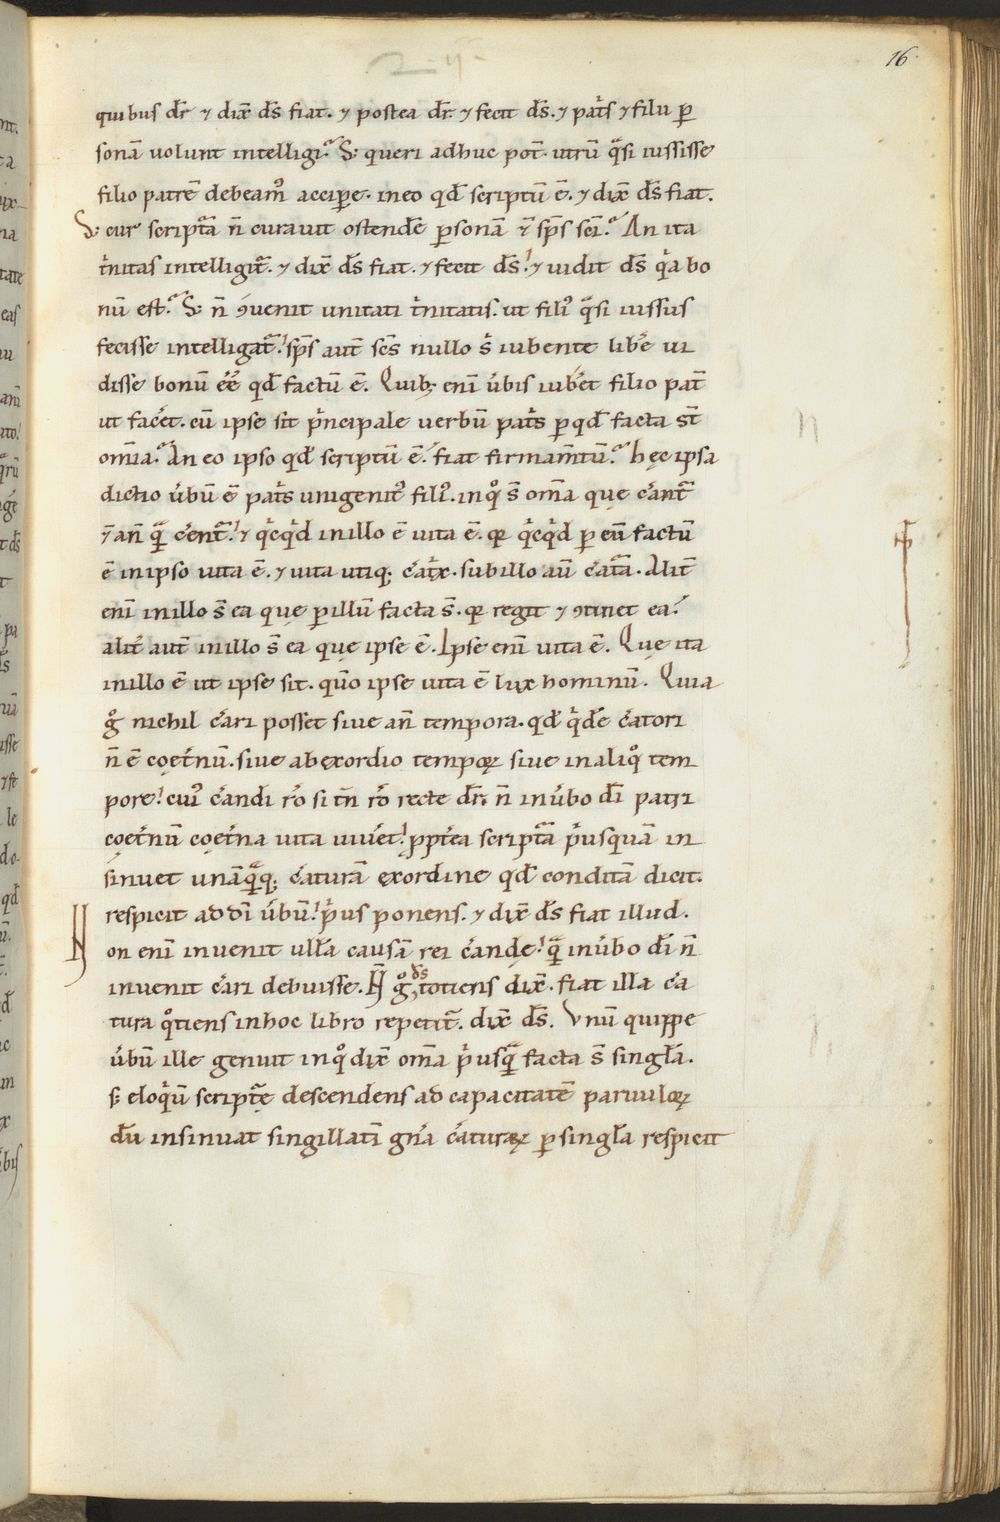 16
quibus dr̄ ⁊ dix̄ ds̄ fiat. ⁊ postea dr̄. ⁊ fecit ds̄. ⁊ pat̄s ⁊ filii ꝑ
sonā volunt intelligi? S; queri adhuc pot̄. utrū q̄si iussisse
filio patrē debeam᷒ accipe. in eo qd̄ scriptū ē. ⁊ dix̄ ds̄ fiat.
S; cur scriptā n̄ curavit ostendē ꝑsonā ⁊ sp̄s sc̄i? An ita
t̄nitas intelligit̄. ⁊ dix̄ ds̄ fiat. ⁊ fecit ds̄! ⁊ uidit ds̄ q̄a bo
nū est? S; n̄ ꝯuenit unitati t̄nitatis. ut fili᷒ q̄si iussus
fecisse intelligat̄! sp̄s aut̄ sc̄s nullo s̄ iubente lib̄e ui
disse bonū ēē qd̄ factū ē. Quib; enī ūbis iub̄et filio pat̄
ut fac̄et. cū ipse sit p̄ncipale uerbū pat̄s ꝑ qd̄ facta st̄
om̄ia? An eo ipso qd̄ scriptū ē! fiat firmam̄tū? hęc ipsa
dictio ūbū ē pat̄s unigenit᷒ fili᷒. in q̊ s̄ om̄a que c̄ant̄
⁊ an̄ qā c̄ent̄! ⁊ q̄cq̄d in illo ē uita ē. qꝛ q̄cq̄d ꝑ eū factū
ē in ipso uita ē. ⁊ uita utiq; c̄at̄x. sub illo aū c̄atā. Alit̄
enī in illo s̄ ea quę ꝑ illū facta s̄. qꝛ regit ⁊ ꝯtinet ea!
alit̄ aut̄ in illo s̄ ea quę ipse ē. Ipse enī uita ē. Quę ita
in illo ē ut ipse sit. qūo ipse uita ē lux hominū. Quia
g̊ nichil c̄ari posset siue an̄ tempora. qd̄ q̄dē c̄atori
n̄ ē coęt̄nū. siue ab exordio tempoꝝ siue in aliq̊ tem
pore! cui᷒ c̄andi r̄o si tn̄ r̄o recte dr̄. n̄ in ūbo dī patri
coęt̄nū coęt̄na uita uiuet! ꝓpt̄ea scriptā p̄usquā in
sinuet unāq̄q; c̄aturā ex ordine qd̄ conditā dicit.
respicit ad dī ūbū! p̄us ponens. ⁊ dix̄ ds̄ fiat illud.
Non enī inuenit ullā causā rei c̄andę! qā in ūbo dī n̄
inuenit c̄ari debuisse. N̄ g̊ ds̄ totiens dix̄. fiat illa c̄a
tura q̊tiens in hoc libro repetit̄. dix̄ ds̄. Vnū quippe
ūbū ille genuit in q̊ dix̄ om̄a p̄usq̄ facta s̄ singl̄a.
s; eloq̄ū script̄ę descendens ad capacitatē paruuloꝝ
dū insinuat singillatī gn̄a c̄aturaꝝ ꝑ singl̄a respicit